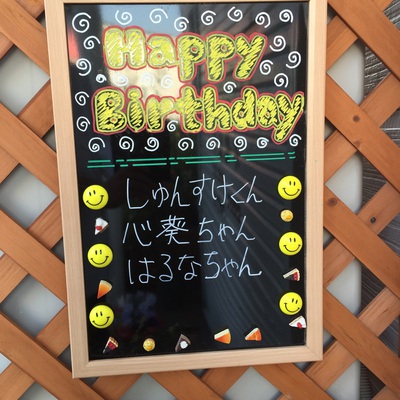 Happy
Birthday
しゅんすけくん
心葵ちゃん
はるなちゃん